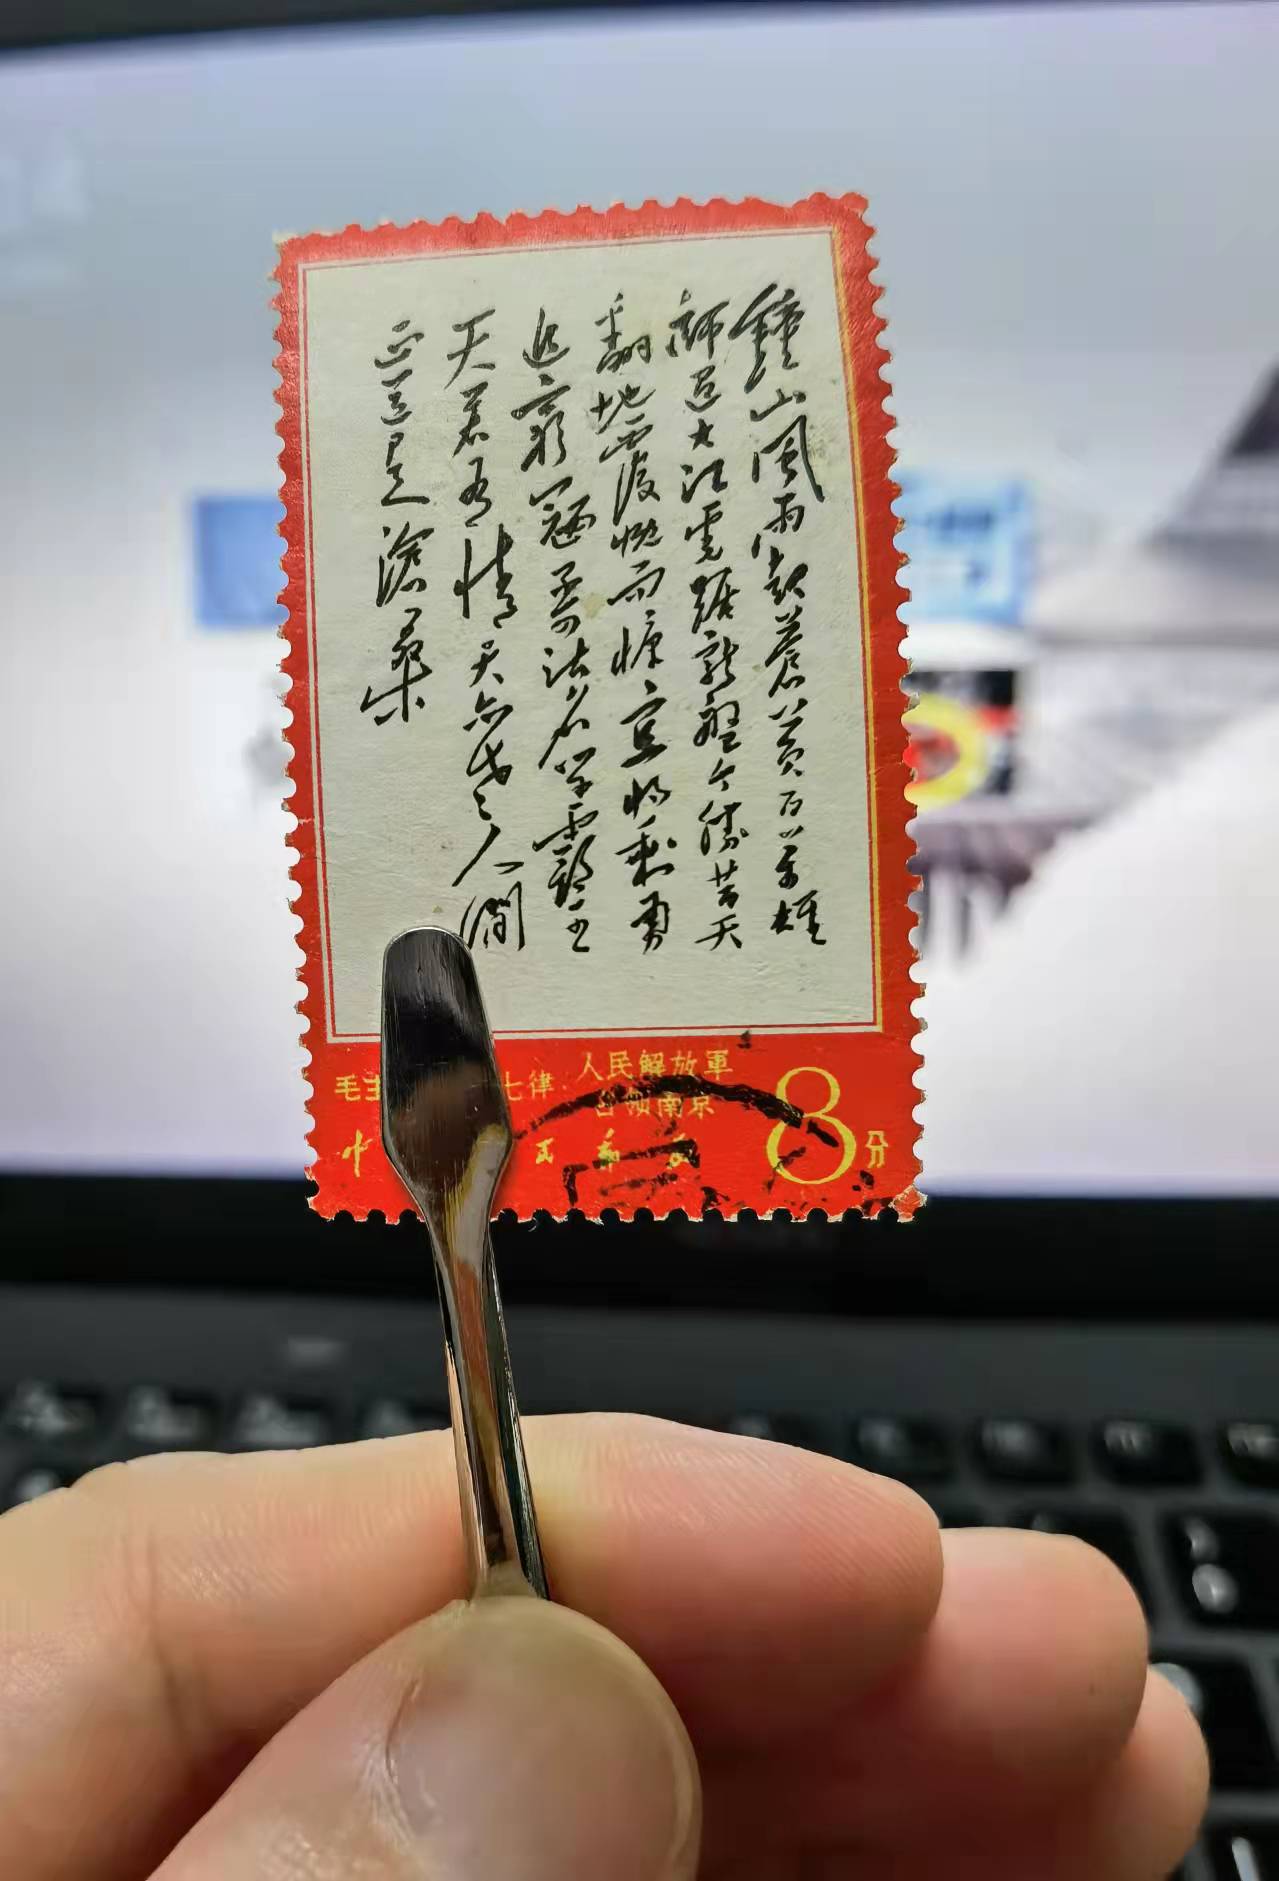 鐘山風雨起蒼黃百萬雄
師過大江虎踞龍盤今勝昔天
翻地覆慨而慷宜將剩勇
追窮寇不可沽名學霸王
天若有情天亦老人間
正道是滄桑
毛主 七律 人民解放軍
占领南京
中 民郵政
8分